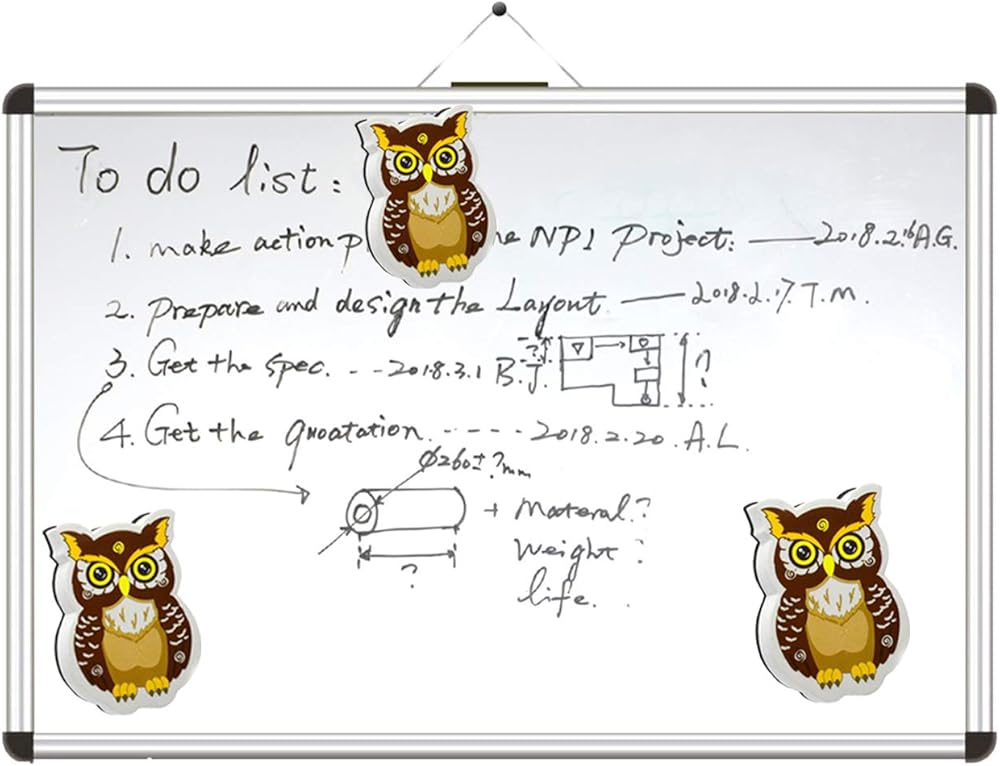 To do list:
1. make action p he NPI Project. —— 2018.2.16 A.G.
2. Prepare and design the Layout. —— 2018.2.17. T.M.
3. Get the spec. - - - 2018.3.1 B.J. ? ?
4. Get the quoatation. - - - - 2018.2.20. A.L.
Ø260±?mm
+ Materal.?
Weight :
life. . .
?